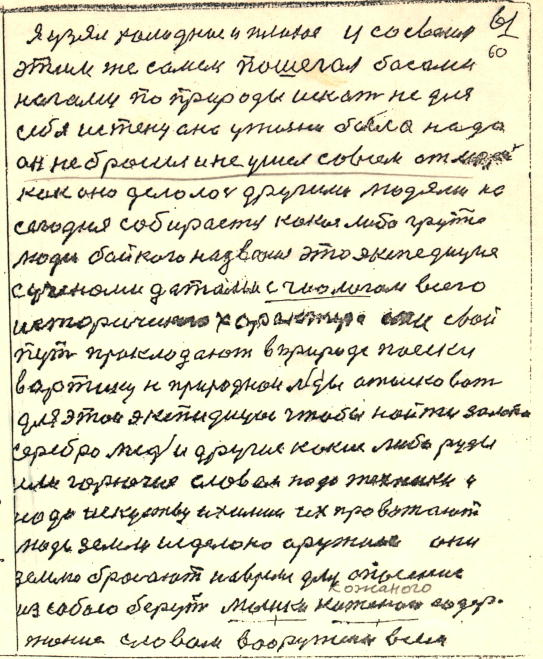 61
60
я узял холодное и плохое и со своим
этим же самем пошегал босами
ногами по природы искат не для
себя истену она у жизни была надо
он не бросил и не ушел совсем от людей
как оно делолос другими людями на
сегодня собираеты какая либо група
люди бойкого названия это экспедицуя
с учеными даталми с гиологом всего
историчиского характира они свой
пут прокладают в природе поески
в артику к природнои льды отысковат
для этой экспидицуи чтобы найти золото
серебро мед и другие какие либо руды
или горючие словом надо техники и
надо искуству и химии их провожают
люди земли и делоно оружие они
землю бросают на время для
кожаного
из собою берут мешки содер-
жоние словом вооружоны всем